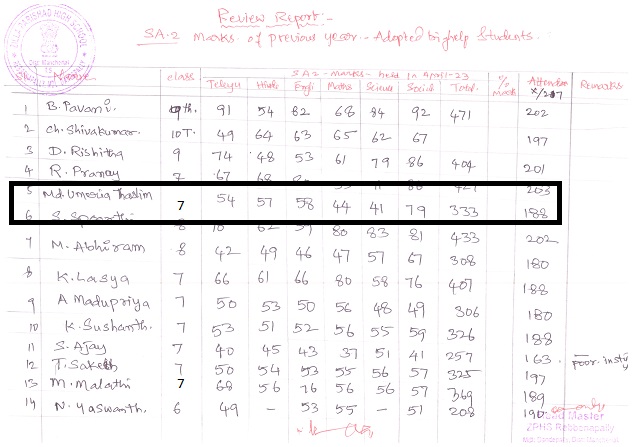 Review Report:-
SA-2 Marks of previous year - Adopted by help Students.
ZILLA PARISHAD HIGH SCHOOL
SA2 - Marks - held in April-23
Sl. Name class Telugu Hindi Engli Maths Science Social Total % Marks Attendan x/207 Remarks
1 B. Pavani. 10th. 91 54 82 68 84 92 471 202
2 Ch. Shivakumar. 10T. 49 64 63 65 62 67 197
3 D. Rishitha 9 74 48 53 61 79 86 404 201
4 R. Pranay 7 67 68
5 Md. Umesia Thaslim 7 54 57 58 44 41 79 333 203
6 188
8 62 80 83 81 433 202
7 M. Abhiram 8 42 49 46 47 57 67 308 180
8 K. Lasya 7 66 61 66 80 58 76 407 188
9 A Madupriya 7 50 53 50 56 48 49 306 180
10 K. Sushanth. 7 53 51 52 56 55 59 326 188
11 S. Ajay 7 40 45 43 37 51 41 257 163. poor insty
12 T. Saketh 7 50 54 53 55 56 57 325 197
13 M. Malathi 7 68 56 76 56 56 57 369 189
14 N. Yaswanth. 6 49 - 53 55 - 51 208 190
Head Master
ZPHS Rebbanapally